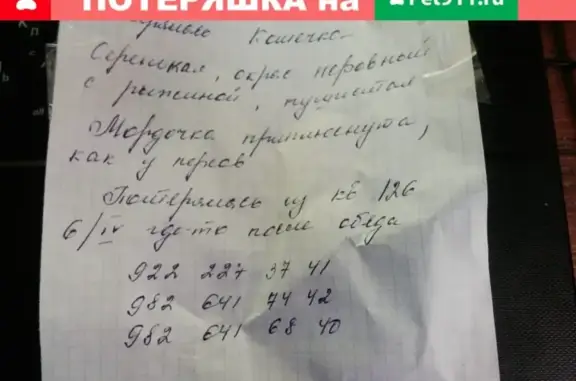 ПОТЕРЯШКА на
Pet911.ru
Кошечка
Серенькая, окрас неровный
с рыжиной, пушистая
Мордочка приплюснута,
как у персов
Потерялась из кв 126
6/IV где-то после обеда
922 227 37 41
982 641 74 42
982 641 68 40